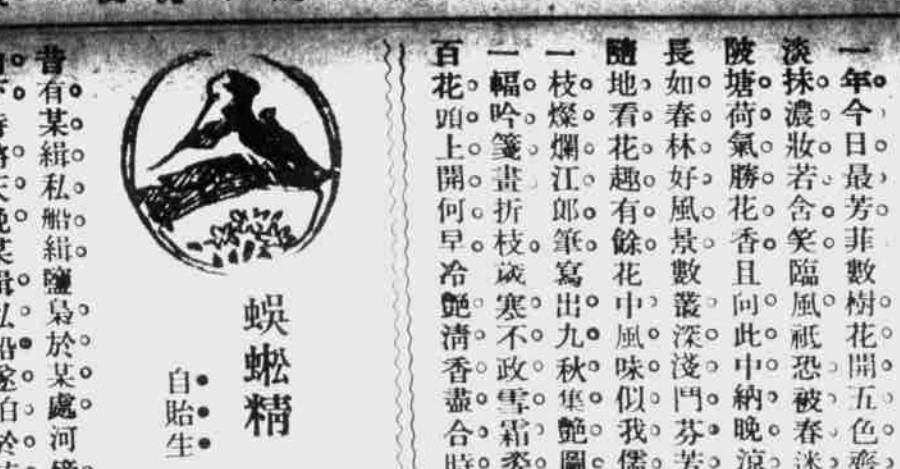 一年今日最芳菲數樹花開五色齊
淡抹濃妝若含笑臨風祇恐被春迷
陂塘荷氣勝花香且向此中納晚涼
長如春林好風景數叢深淺鬥芬芳
隨地看花趣有餘花中風味似我儒
一枝燦爛江郎筆寫出九秋集艷圖
一幅吟箋畫折枝歲寒不政雪霜
百花頭上開何早冷艷清香盡合時
蜈蚣精
自貽生
昔有某緝私船緝鹽梟於某處河